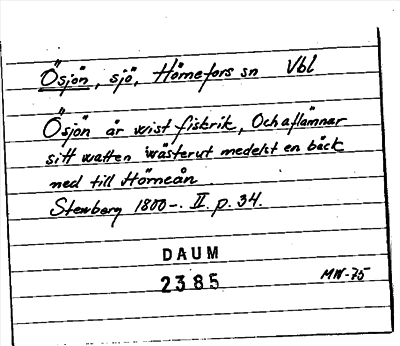 Ösjön, sjö, Hörnefors sn Vbl
Ösjön är wist fiskrik, Och aflämnar
sitt watten wästerut medelst en bäck
ned till Hörneån
Stenberg 1800-. II. p. 34.
DAUM
2385
MW-75